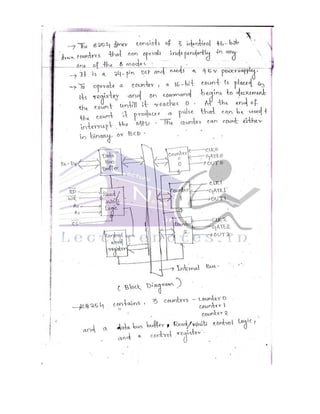 → The 8254 timer consists of 3 identical 16-bit
down countres that can operate independently in any
one of the 6 modes.
→ It is a 24-pin DIP and needs a +5V powersupply.
→ To operate a counter, a 16-bit count is placed in
its registry and on command begins to decrement
the count untill it reaches 0. At the end of
the count it producer a pulse that can be used to
interrupt the MPU. The counter can count either
in binary or BCD.
D7-D0
Data
Bus
Buffer
Counter
0
CLK0
GATE0
OUT0
RD
WR
A0
A1
CS
Read
Write
Logic
Counter
1
CLK1
GATE1
OUT1
Control
word
register
Counter
2
CLK2
GATE2
OUT2
LectureNotes.in
→ Internal Bus.
( Block Diagram )
→ 8254 contains, 3 counters - counter 0
counter 1
counter 2
and a data bus buffer, Read/write control logic,
and a control register.